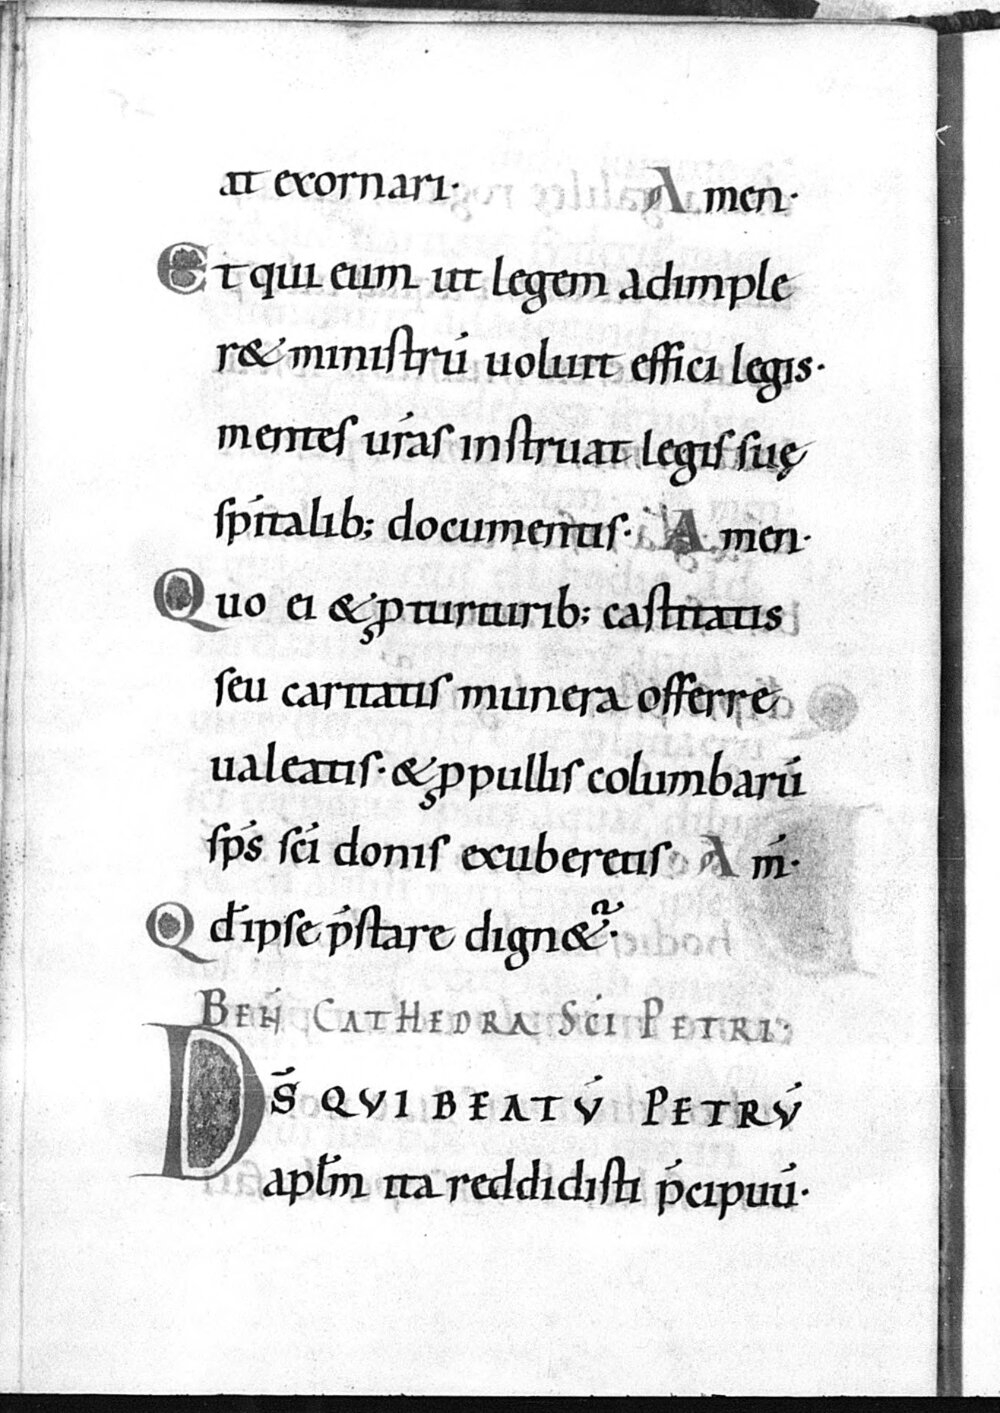 at exornari· Amen·
Et qui eum ut legem adimple
r& ministrú uoluit effici legis·
mentes ur̃as instruat legis suę
spĩtalib; documentis· Amen·
Quo ei & ꝓ turturib; castitatis
seu caritatis munera offerre
ualeatis· & ꝓ pullis columbarú
sp̃s sc̃i donis exuberetis Am̃·
Qd̃ ipse p̃stare dign&ᷣ·
BEÑ CATHEDRA SC̃I PETRI·
DS̃ QVI BEATṼ PETRṼ
apl̃m ita reddidisti p̃cipuũ·